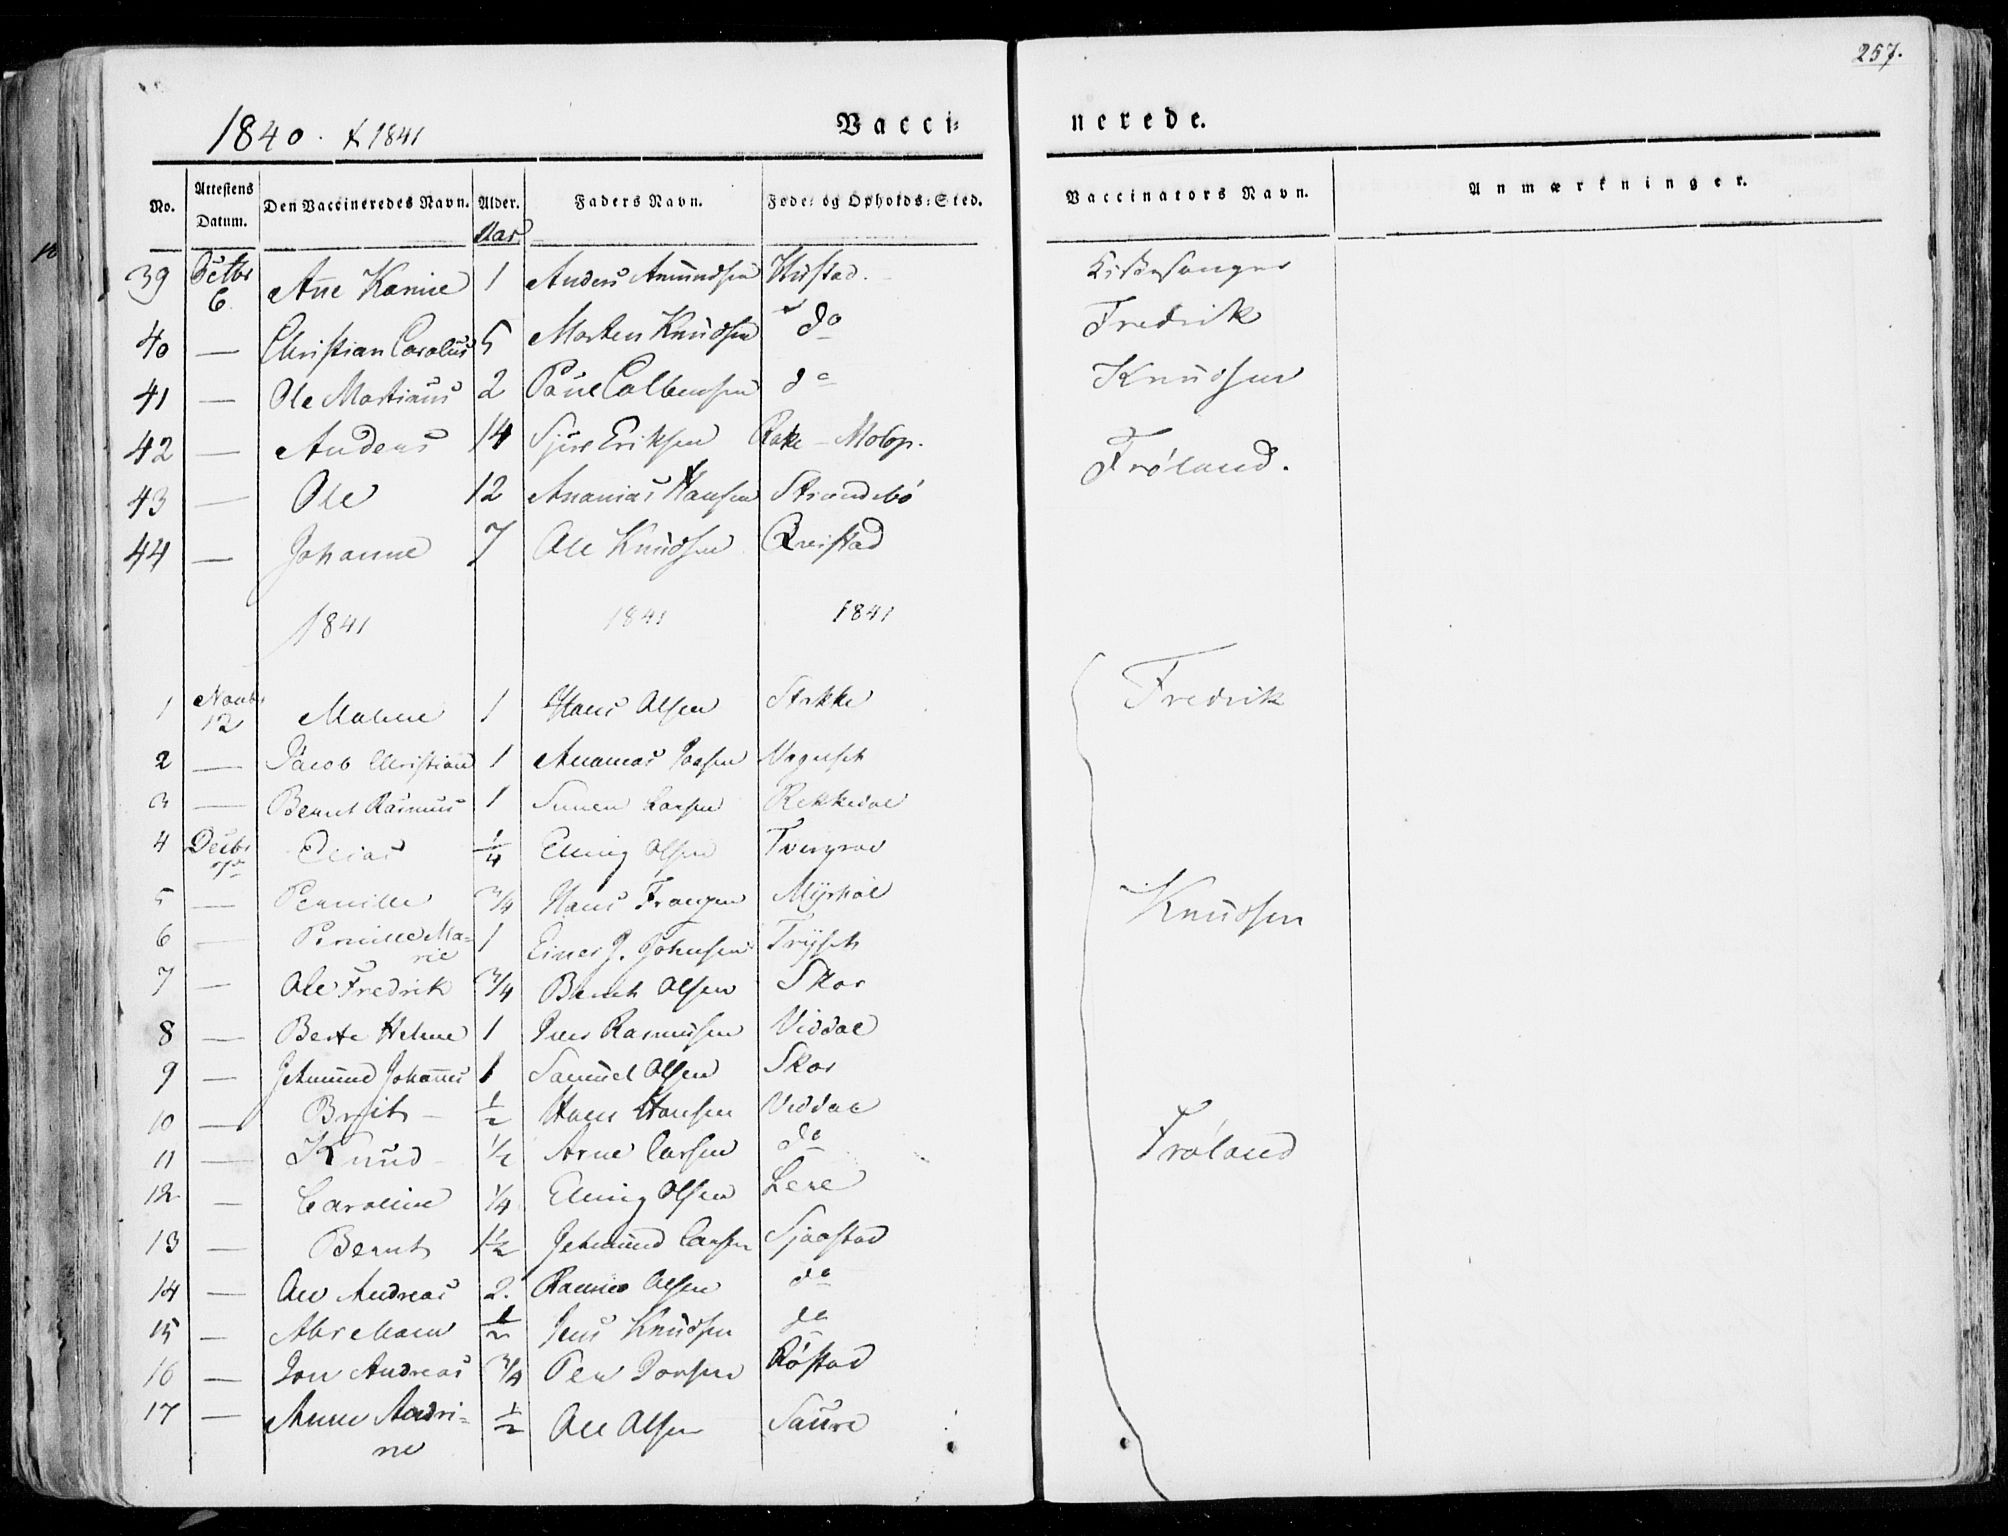 257.
1840. & 1841 Vacci- nerede.
No. Attestens Datum. Den Vaccineredes Navn. Alder. Faders Navn. Føde- og Opholds-Sted. Vaccinators Navn. Anmærkninger.
Aar
39 6 Ane Karine 1 Anders Amundsen Hustad Kirkesanger
40 — Christian Carolus 5 Morten Knudsen do Fredrik
41 — Ole Martinus 2 Paul Colbensen do Knudsen
42 — Anders 14 Sjur Eriksen Frøland.
43 — Ole 12 Ananias Hansen Strandebø
44 — Johanne 7 Ole Knudsen Qveistad
1841 1841 1841
1 Novbr 12 Malene 1 Hans Olsen Stokke Fredrik
2 — Jacob Christian 1 Ananias
3 — Bernt Rasmus 1 Larsen Rekkedal
4 Decbr Elias 1/4 Elling Olsen
5 — Pernille 3/4 Hans Myrhol
6 — Pernille Ma- 1 Einer J. Johnsen Knudsen
rie
7 — Ole Fredrik 3/4 Bernt Olsen Skor
8 — Berte Helene 1 Iver Rasmussen Viddal
9 — Jetmund Johannes 1 Samuel Olsen Skor
10 — Brit 1/2 Hans Hansen Viddal
11 — Knud 1/2 Arne Larsen do Frøland
12 — Caroline 1/4 Elling Olsen
13 — Bernt 1 1/2 Jetmund Larsen Sjaastad
14 — Ole Andreas 2. Rasmus Olsen do
15 — Abraham 1/2 Jens Knudsen do
16 — Jon Andreas 3/4 Peer Røstad
17 — Anne Andri- 1/2 Ole Olsen Saure
ne